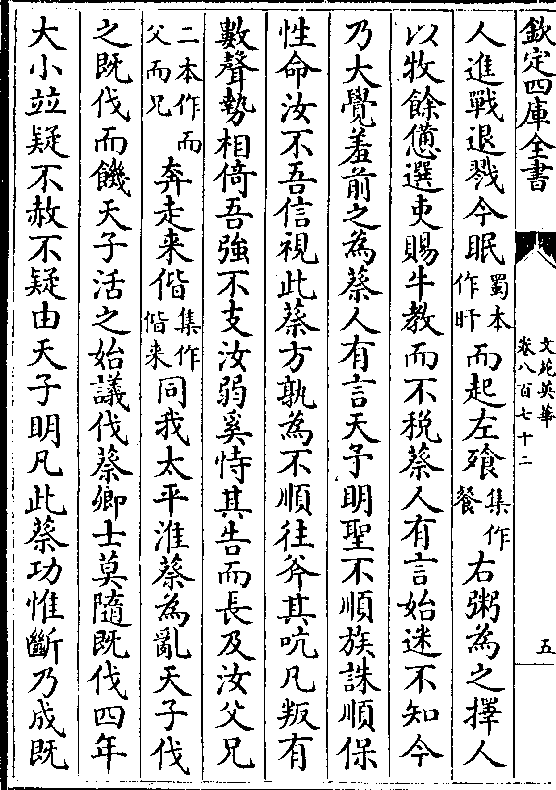 欽定四庫全書
文苑英華
卷八百七十二
五
人進戰退戮今眠蜀本作旰而起左飱集作餐右粥為之擇人
以牧餘憊選吏賜牛教而不稅蔡人有言始迷不知今
乃大覺羞前之為蔡人有言天子明聖不順族誅順保
性命汝不吾信視此蔡方孰為不順往斧其吭凡叛有
數聲勢相倚吾強不支汝弱奚恃其告而長及汝父兄
二本作而父而兄奔走来偕集作偕来同我太平淮蔡為亂天子伐
之既伐而饑天子活之始議伐蔡卿士莫隨既伐四年
大小竝疑不赦不疑由天子明凡此蔡功惟斷乃成既